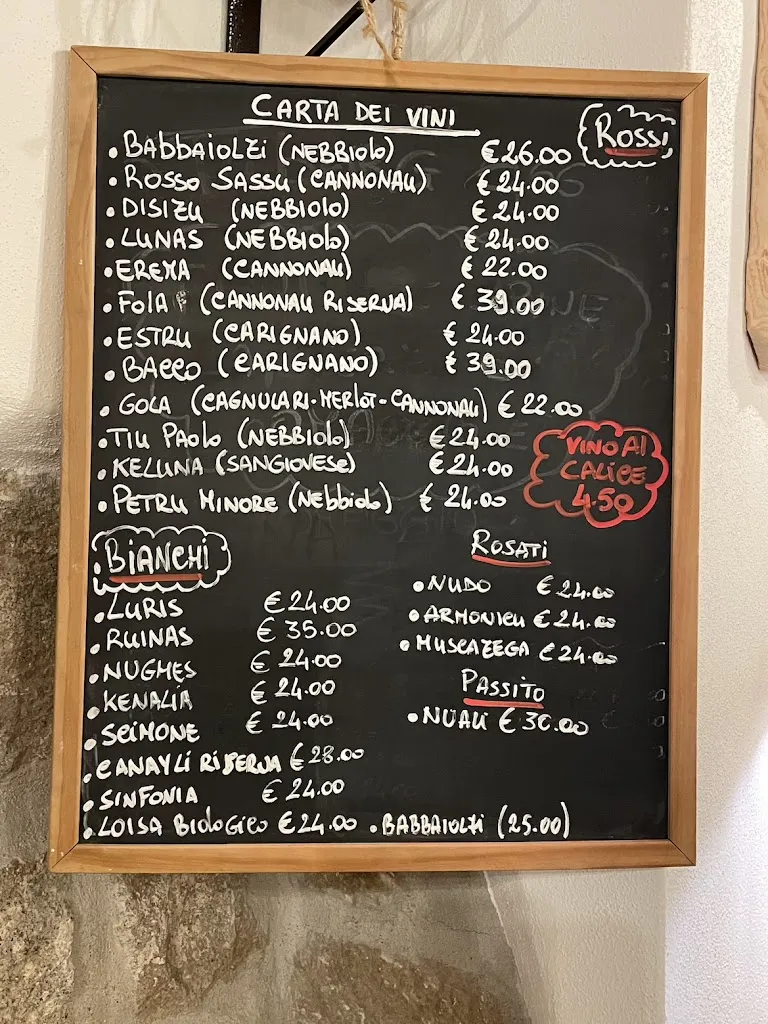 CARTA DEI VINI
ROSSI
• BABBAIOLZI (NEBBIOLO) € 26.00
• ROSSO SASSU (CANNONAU) € 24.00
• DISIZU (NEBBIOLO) € 24.00
• LUNAS (NEBBIOLO) € 24.00
• EREMA (CANNONAU) € 22.00
• FOLA (CANNONAU RISERVA) € 39.00
• ESTRU (CARIGNANO) € 24.00
• BACCO (CARIGNANO) € 39.00
• GOLA (CAGNULARI-MERLOT-CANNONAU) € 22.00
• TIU PAOLO (NEBBIOLO) € 24.00
• KELUNA (SANGIOVESE) € 24.00
• PETRU MINORE (NEBBIOLO) € 24.00
VINO AL
CALICE
4.50
BIANCHI
• LURIS € 24.00
• RUINAS € 35.00
• NUGHES € 24.00
• KENALIA € 24.00
• SCIMONE € 24.00
• CANAYLI RISERVA € 28.00
• SINFONIA € 24.00
• LOISA BIOLOGICO € 24.00 • BABBAIOLZI (25.00)
ROSATI
• NUDO € 24.00
• ARMONIEU € 24.00
• MUSCAZEGA € 24.00
PASSITO
• NUALI € 30.00